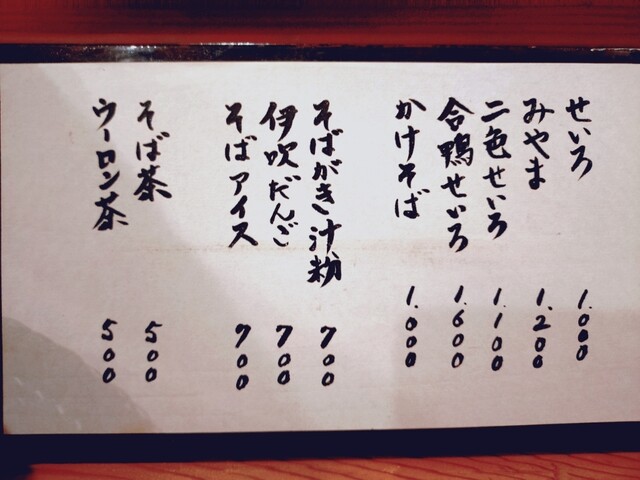 せいろ 1.000
みやま 1.200
二色せいろ 1.100
合鴨せいろ 1.600
かけそば 1.000
そばがき汁粉 700
伊吹だんご 700
そばアイス 700
そば茶 500
ウーロン茶 500